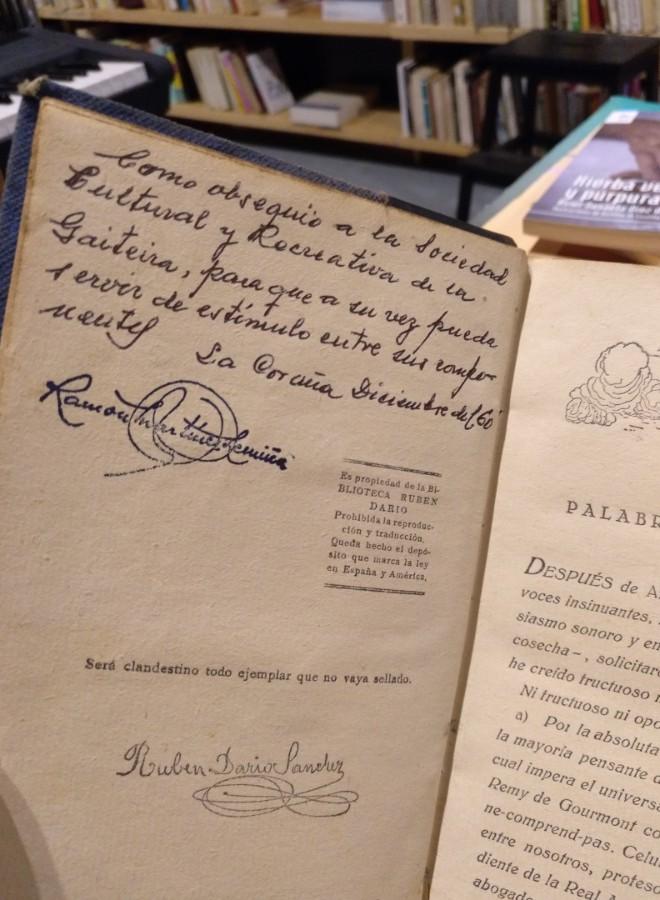 Como obsequio a la Sociedad
Cultural y Recreativa de la
Gaiteira, para que a su vez pueda
servir de estímulo entre sus compo-
nentes
La Coruña Diciembre del 60
Ramón Martínez
Es propiedad de la BI-
BLIOTECA RUBEN
DARIO
Prohibida la reproduc-
ción y traducción.
Queda hecho el depó-
sito que marca la ley
en España y América.
Será clandestino todo ejemplar que no vaya sellado.
Ruben Dario Sanchez
Hierba
y púrpura
PALABR
DESPUÉS de A
voces insinuantes,
siasmo sonoro y en
cosecha-, solicitar
he creído fructuoso
Ni fructuoso ni opo
a) Por la absoluta
la mayoría pensante d
cual impera el universa
Remy de Gourmont co
ne-comprend-pas. Celu
entre nosotros, profeso
diente de la Real A
abogado